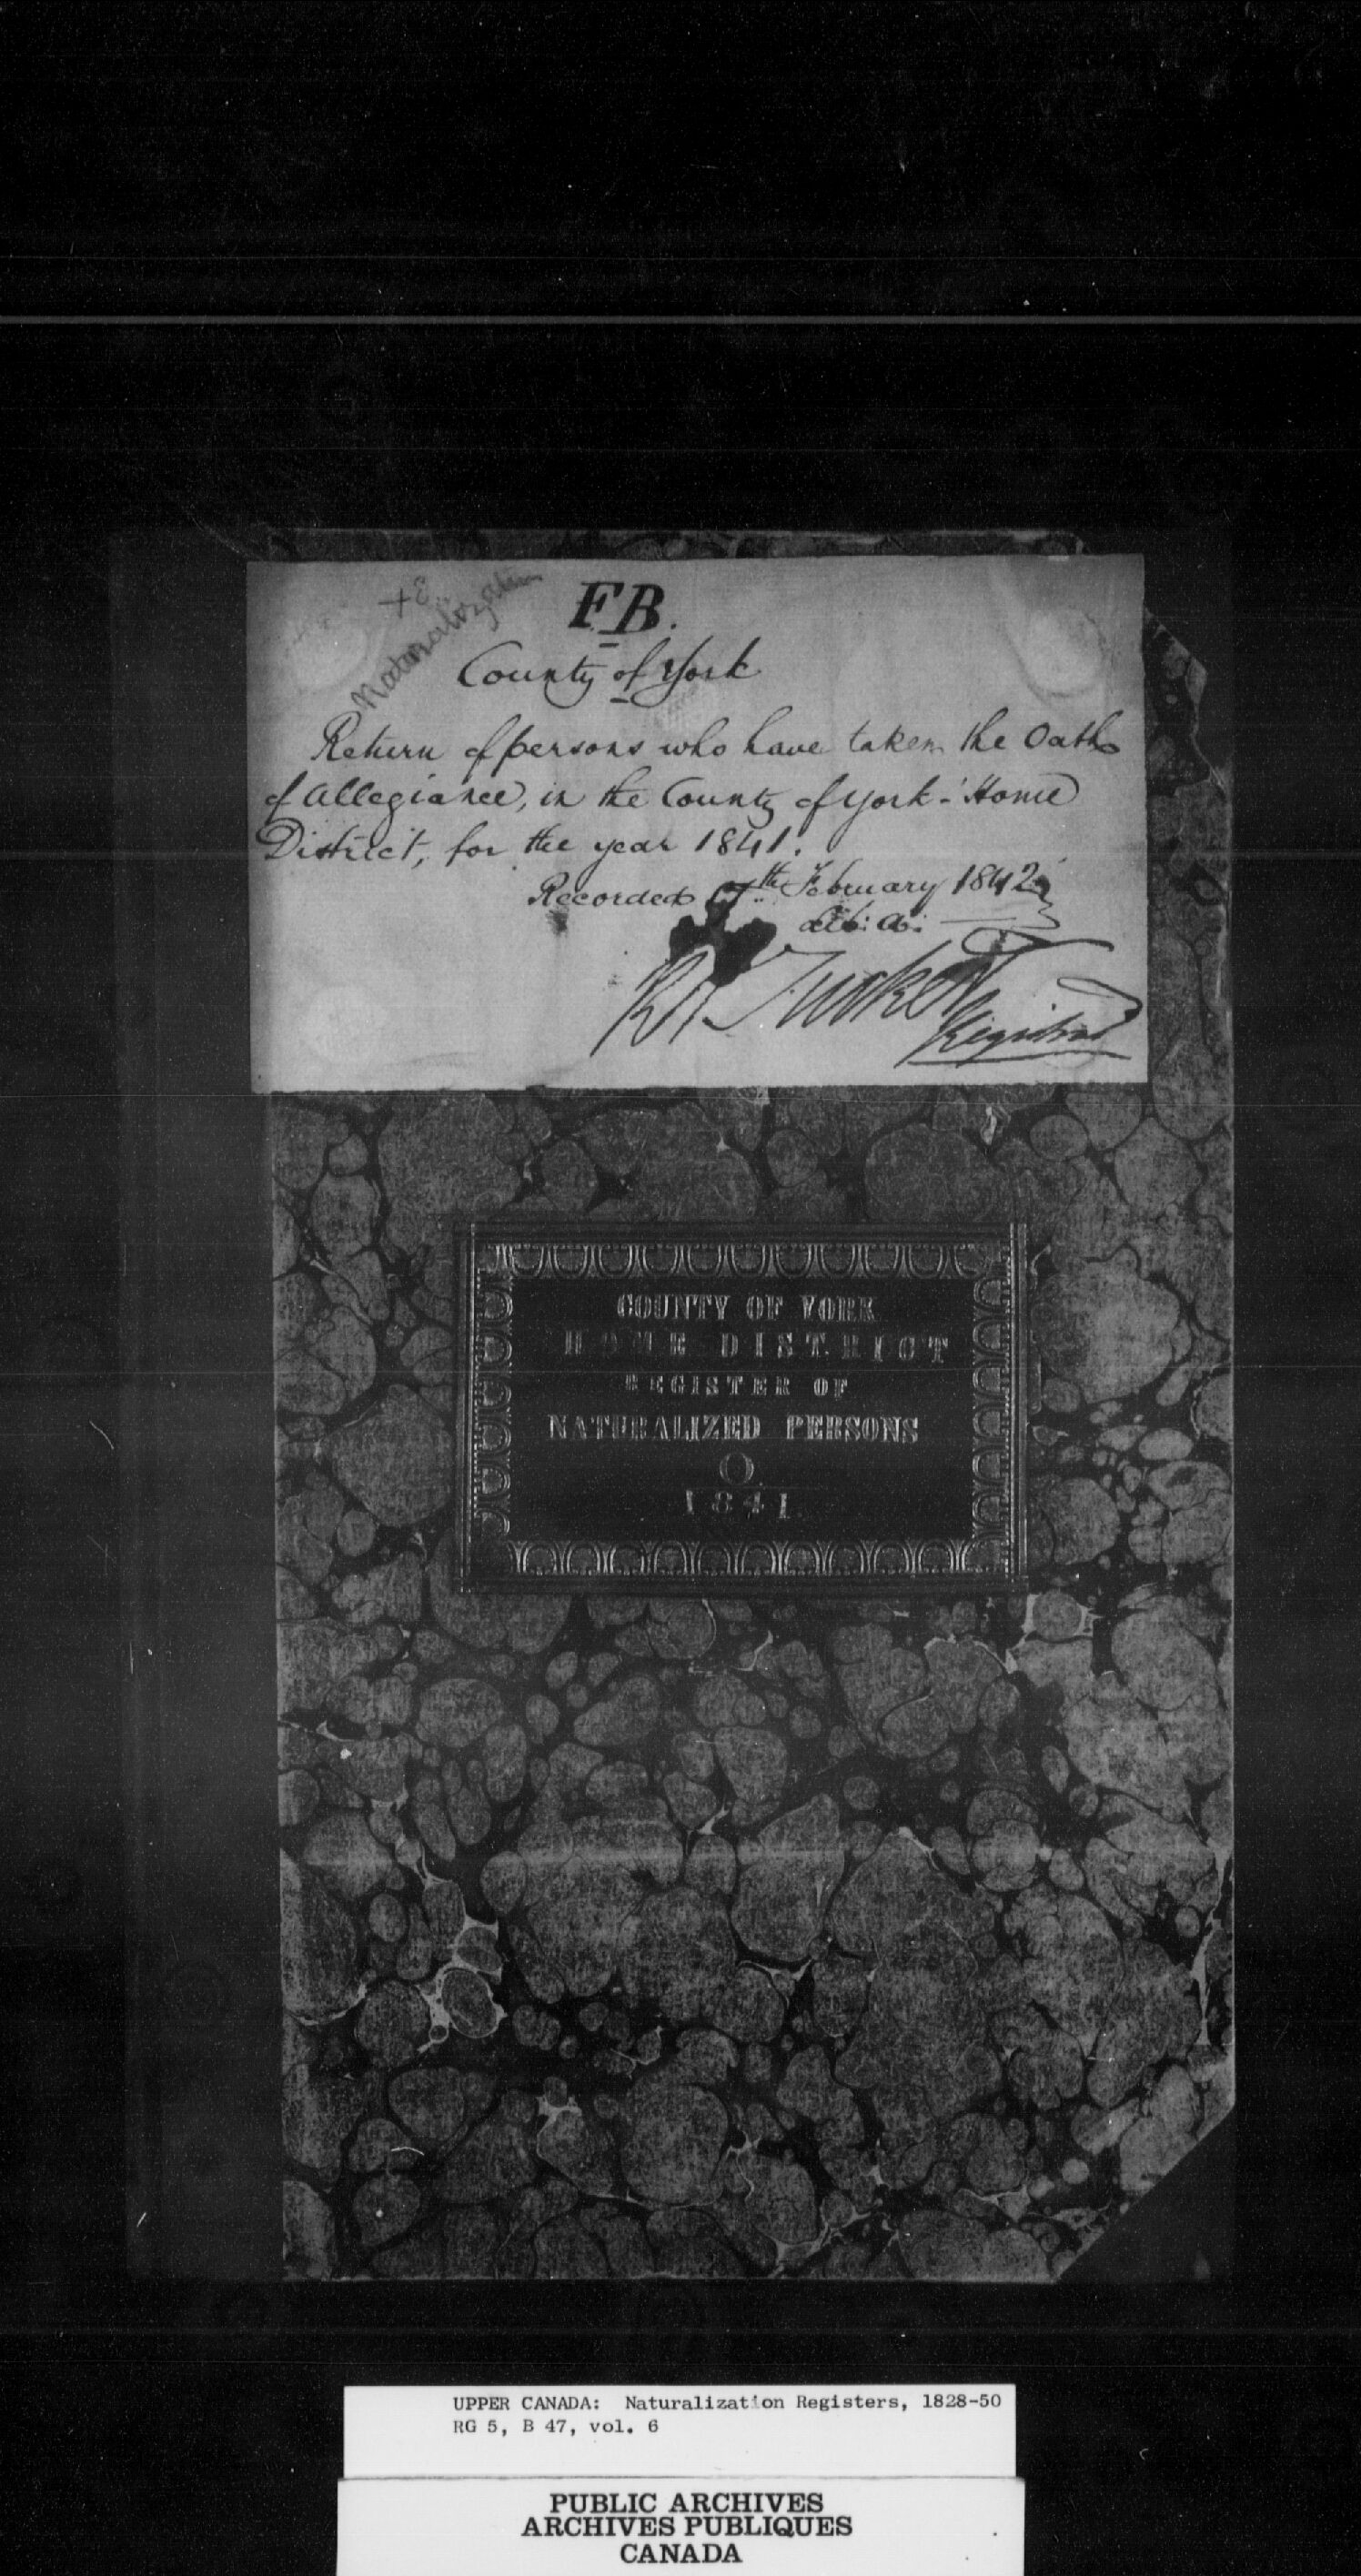 Naturalization
F.B.
County of York
Return of persons who have taken the Oath
of Allegiance, in the County of York - Home
District, for the year 1841.
Recorded 7th February 1842
R A Tucker
Registrar
COUNTY OF YORK
HOME DISTRICT
REGISTER OF
NATURALIZED PERSONS
O
1841.
UPPER CANADA: Naturalization Registers, 1828-50
RG 5, B 47, vol. 6
PUBLIC ARCHIVES
ARCHIVES PUBLIQUES
CANADA